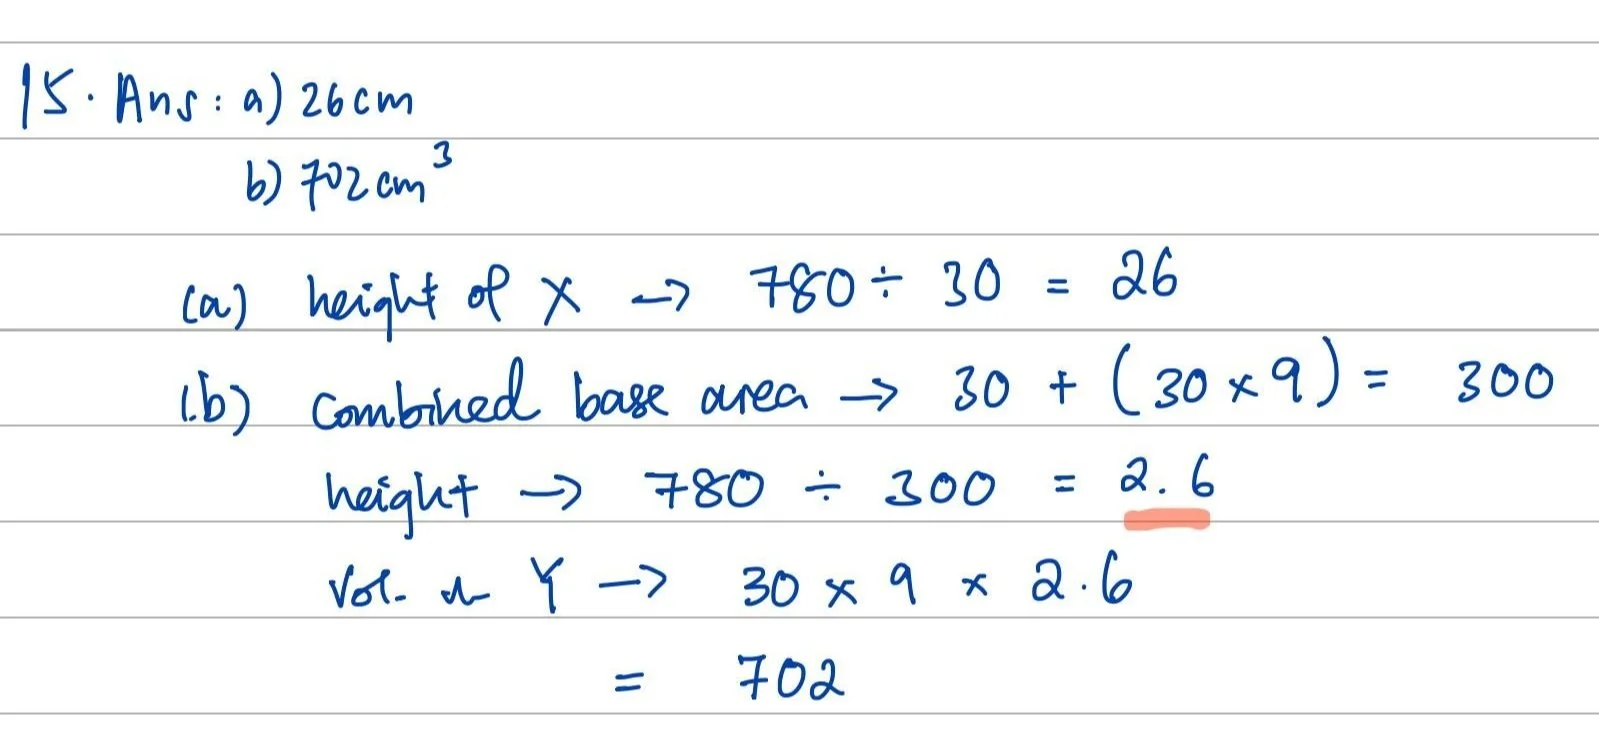 15. Ans: a) 26cm
b) 702cm³
(a) height of X → 780 ÷ 30 = 26
(b) Combined base area → 30 + (30 × 9) = 300
height → 780 ÷ 300 = 2.6
Vol. Y → 30 × 9 × 2.6
= 702